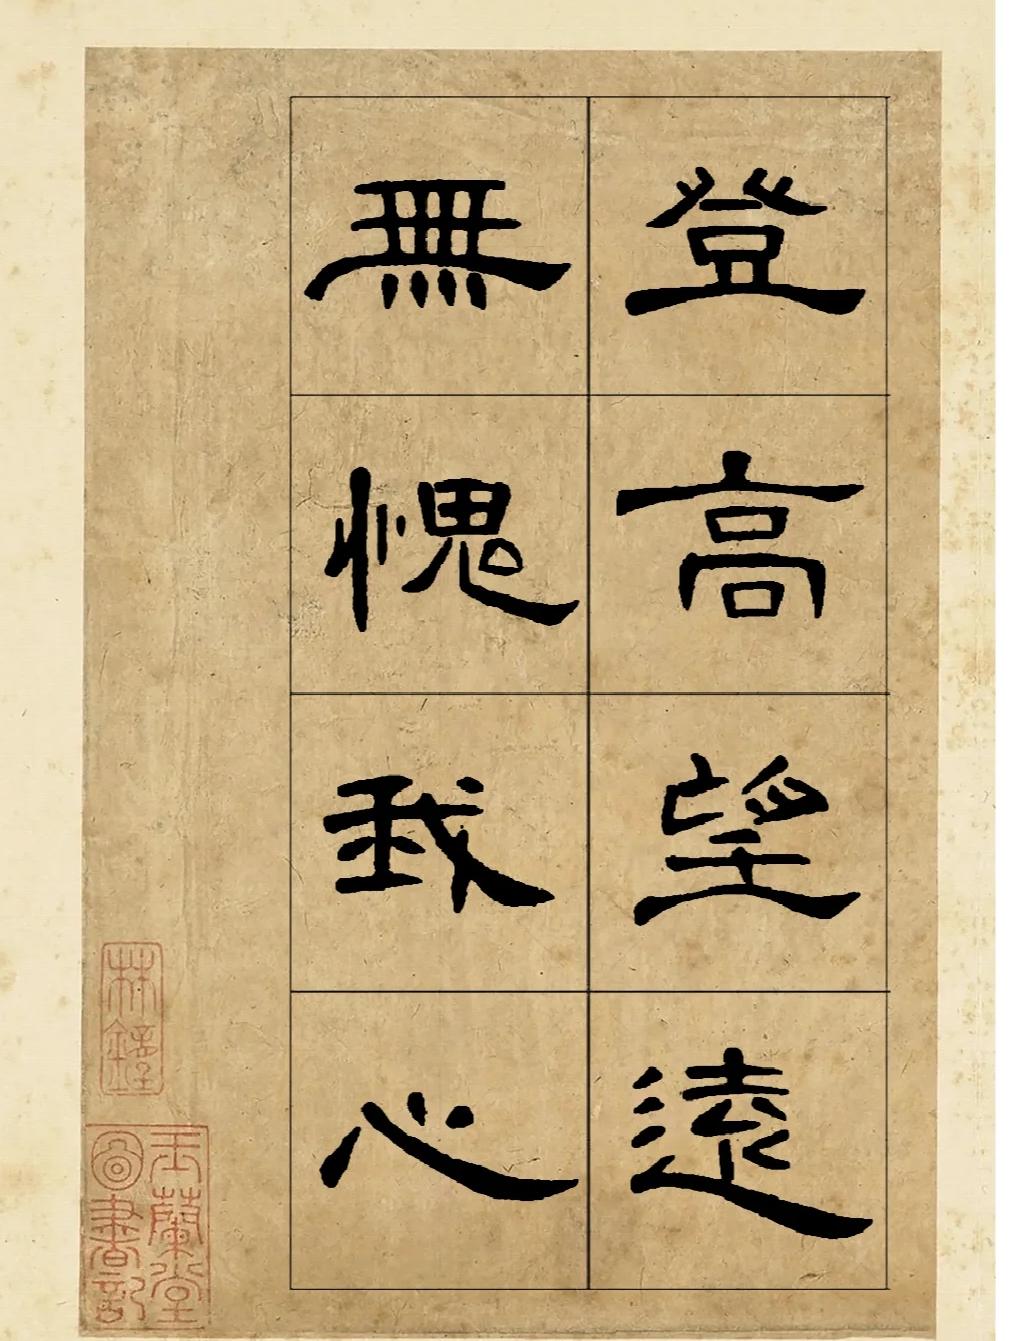 登高望遠
無愧我心
林鐘
玉蘭堂
圖書記